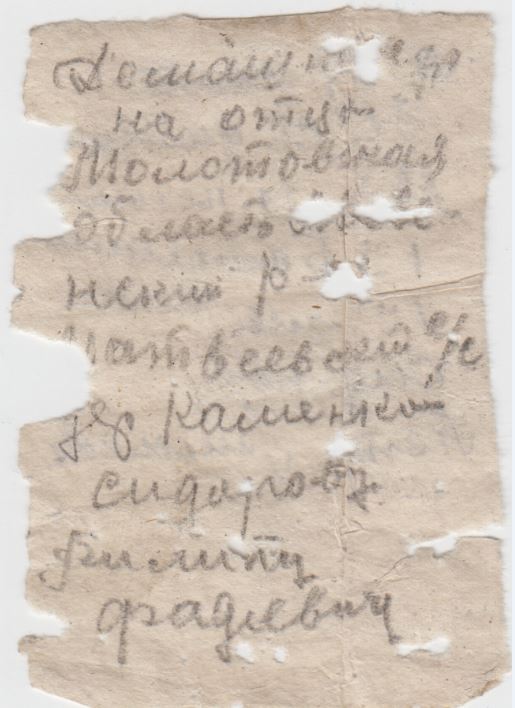 Домашн
на отца
Молотовская
область
нский р
Матвеевский с/с
дер Каменка
сидорову
Филипу
фадеевичу